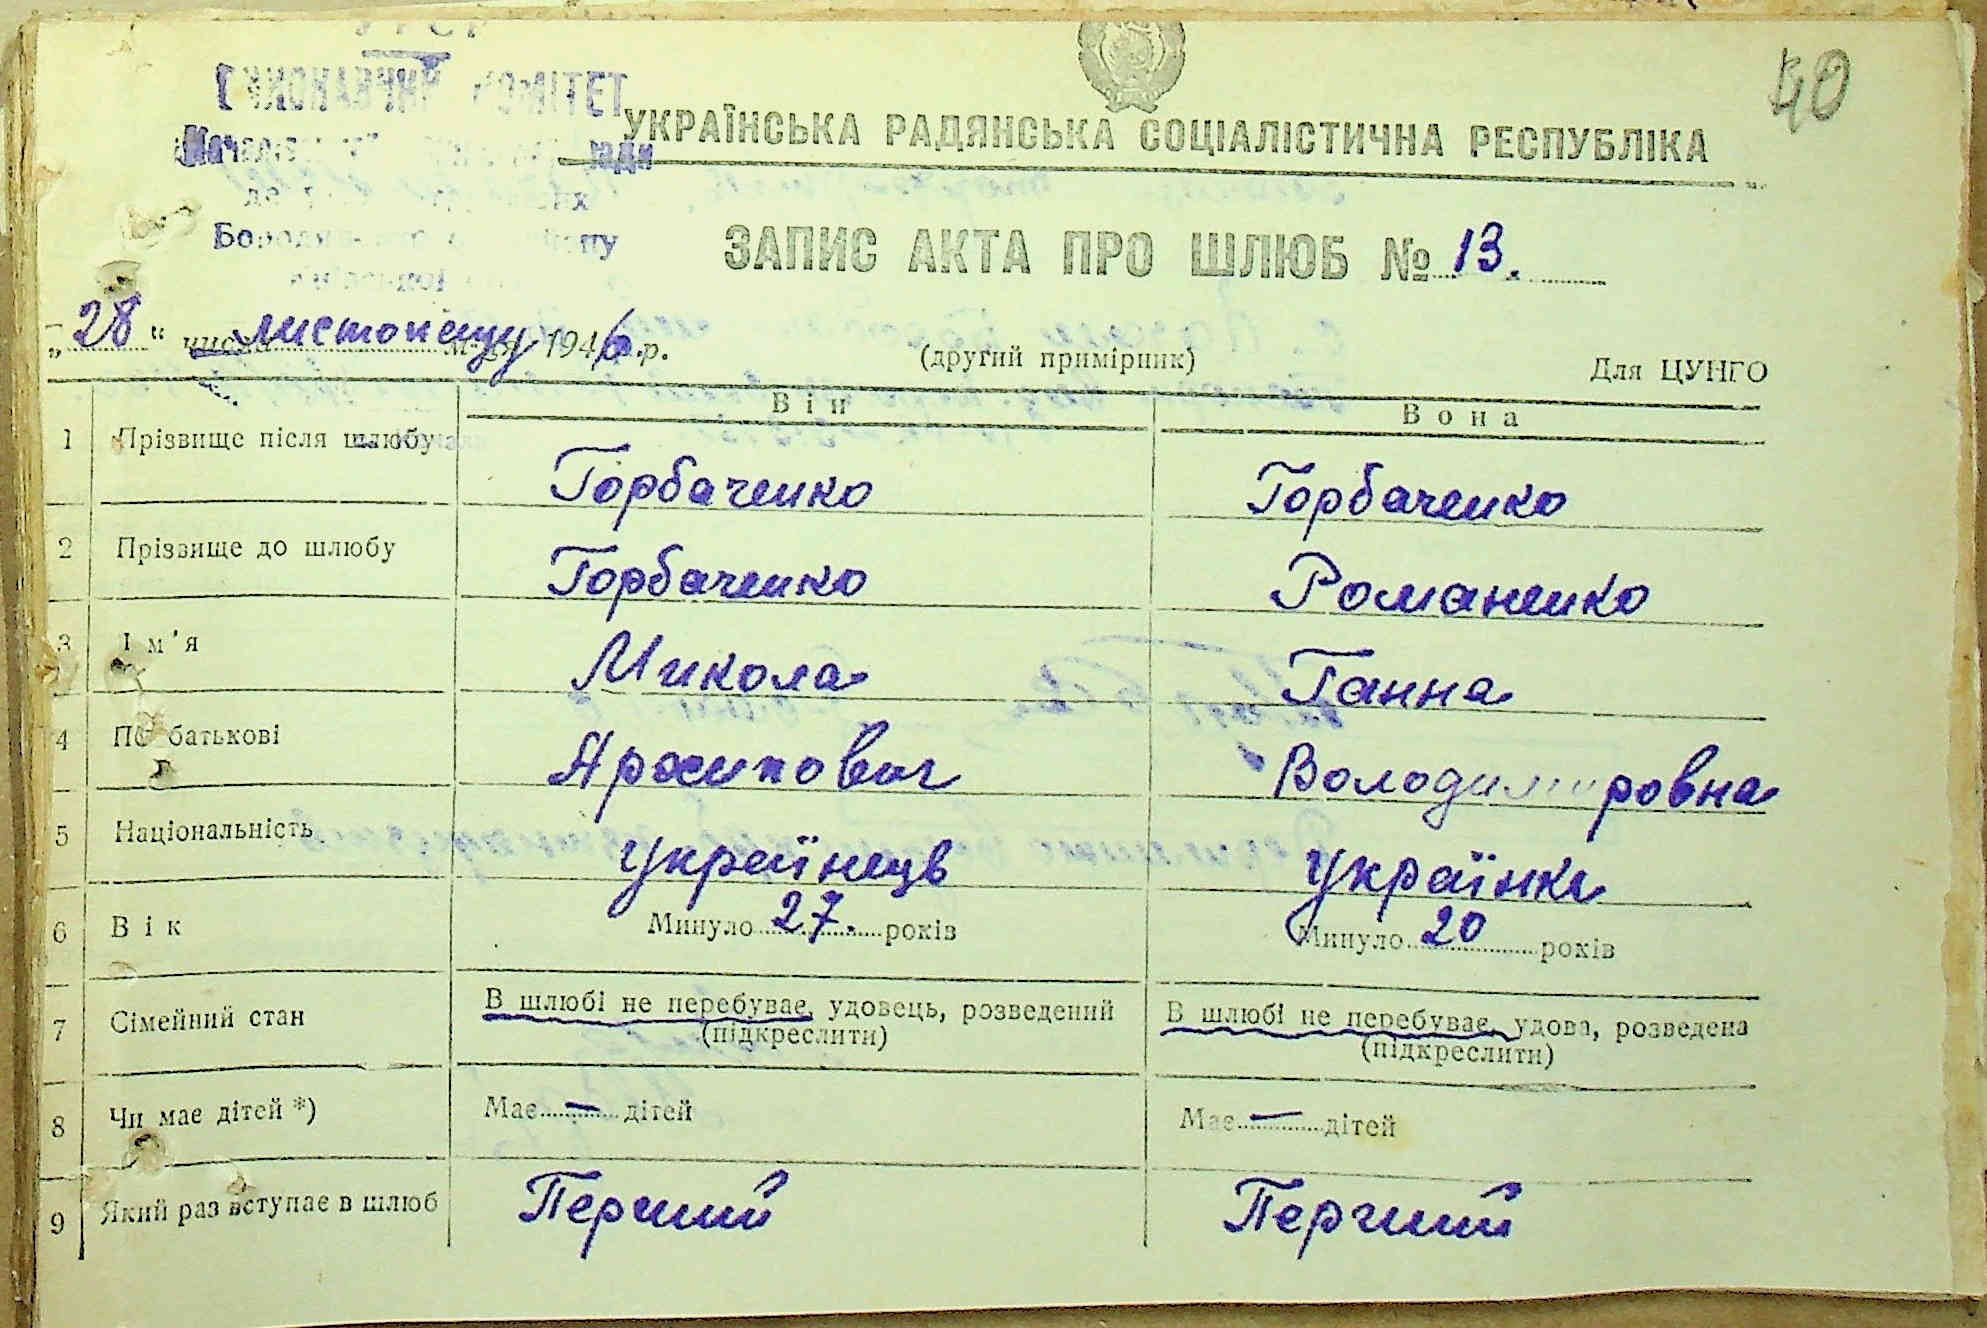 40
ВИКОНАВЧИЙ КОМІТЕТ
ради
УКРАЇНСЬКА РАДЯНСЬКА СОЦІАЛІСТИЧНА РЕСПУБЛІКА
ЗАПИС АКТА ПРО ШЛЮБ № 13.
„28“ числа листопаду м-ця 1946 р.
(другий примірник)
Для ЦУНГО
Він Вона
1 Прізвище після шлюбу Горбаченко Горбаченко
2 Прізвище до шлюбу Горбаченко Романенко
3 Ім'я Микола Ганна
4 По батькові Архипович Володимировна
5 Національність Українець Українка
6 Вік Минуло 27. років Минуло 20 років
7 Сімейний стан В шлюбі не перебуває, удовець, розведений В шлюбі не перебуває, удова, розведена
(підкреслити) (підкреслити)
8 Чи має дітей *) Має — дітей Має — дітей
9 Який раз вступає в шлюб Перший Перший